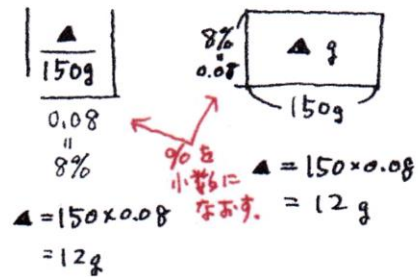 ▲
150g
0.08
॥
8%
▲=150×0.08
=12g
8%
॥
0.08
▲ g
150g
%を
小数に
なおす。
▲ = 150×0.08
= 12 g